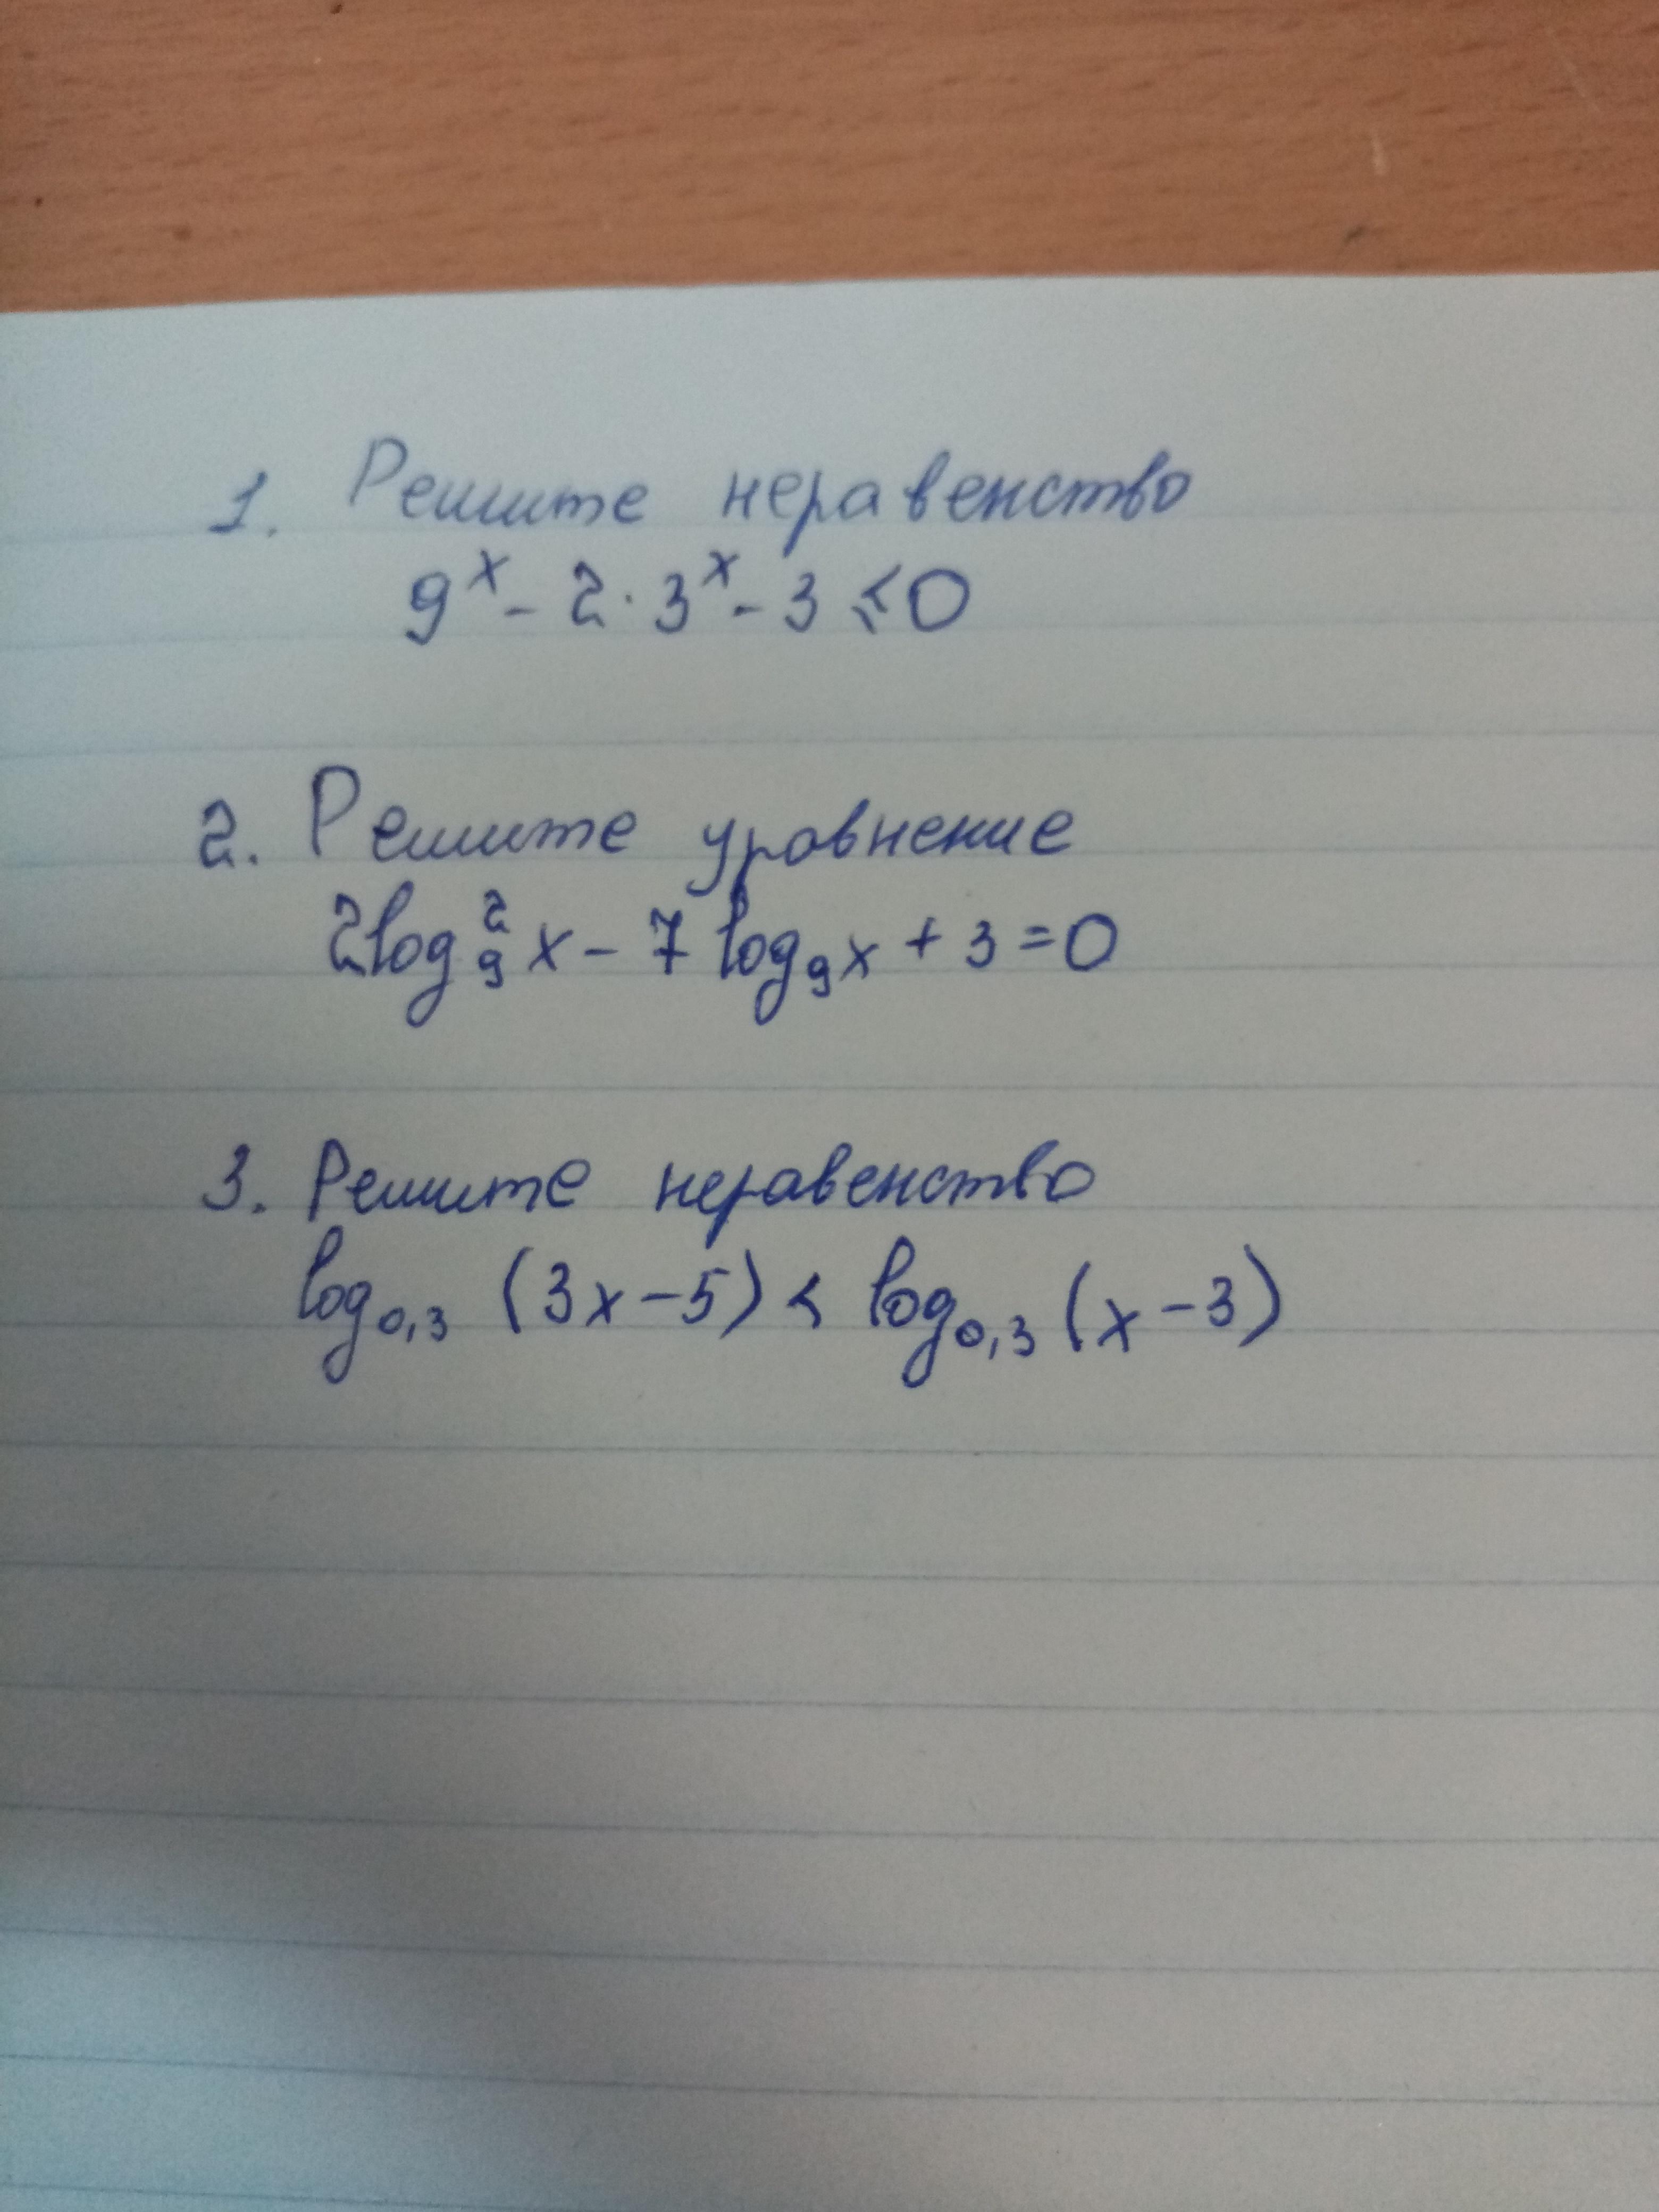 1. Решите неравенство
9ˣ - 2 · 3ˣ - 3 ⩽ 0
2. Решите уравнение
2log₉² x - 7 log₉ x + 3 = 0
3. Решите неравенство
log₀,₃ (3x - 5) < log₀,₃ (x - 3)